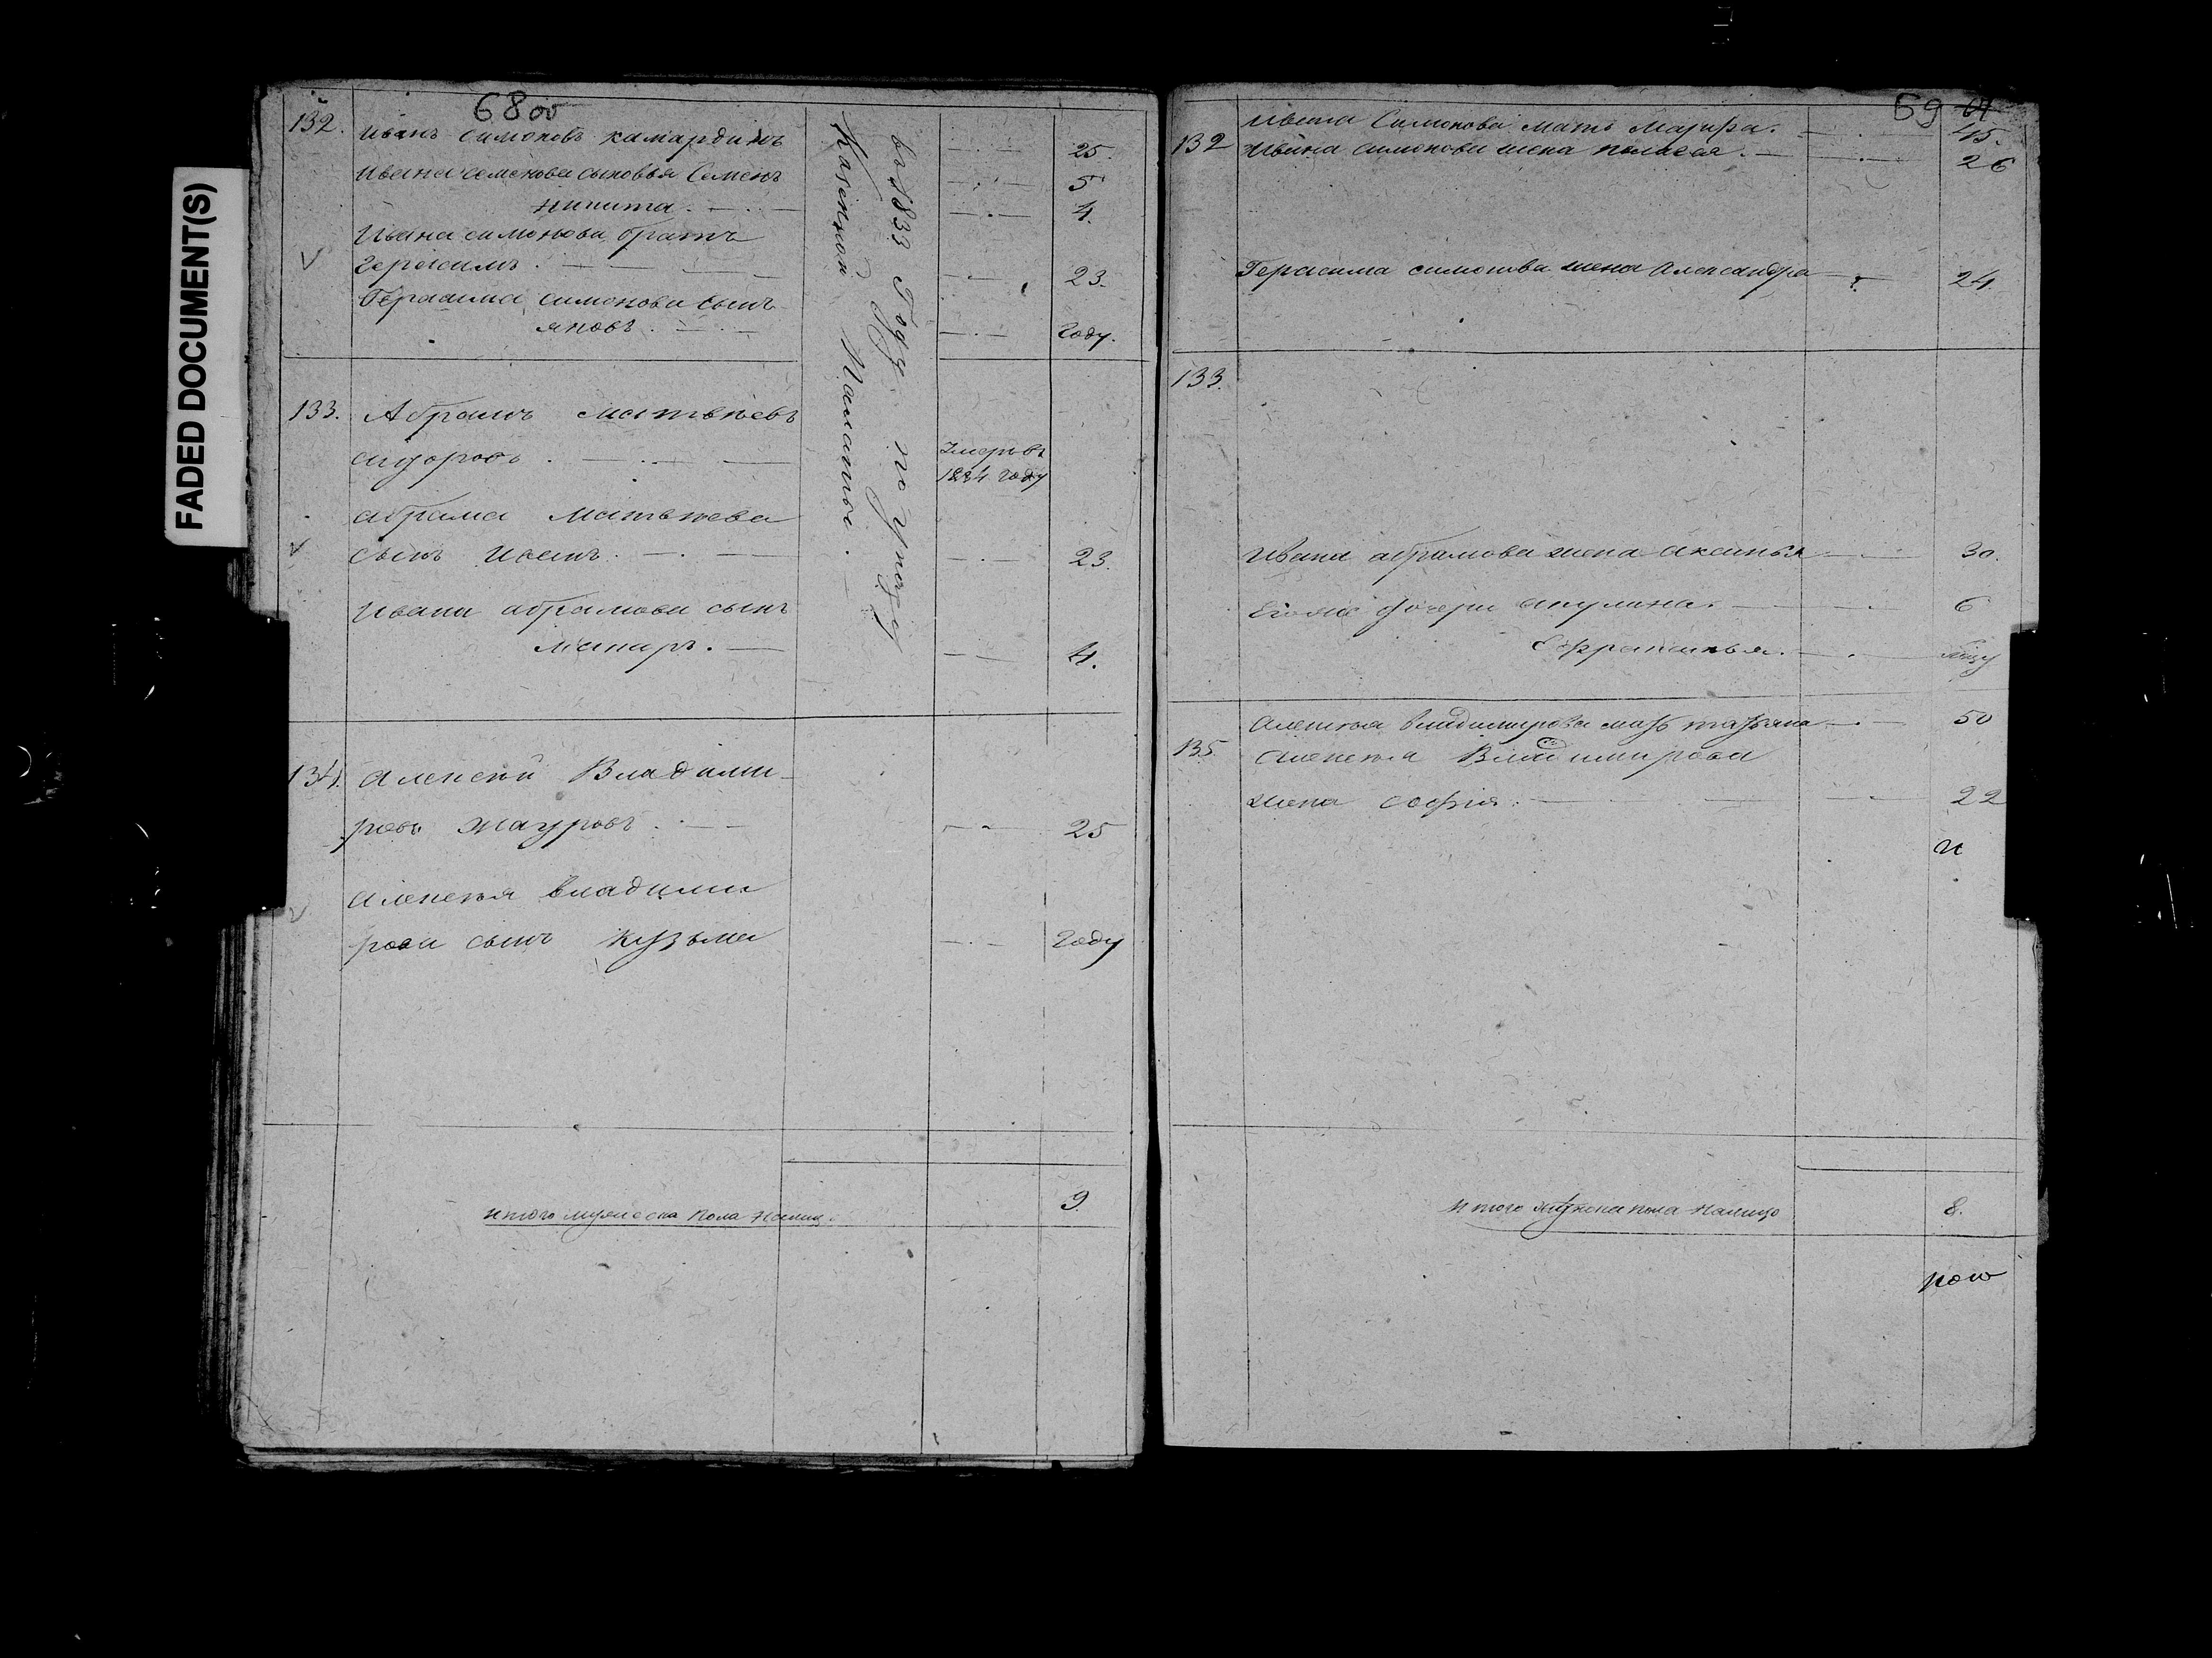 FADED DOCUMENT(S)
68 об
132.
Иванъ Симоновъ Камардинъ
25.
Ивана Семенова сыновья Семенъ
5
Никита.
4.
Ивана Симонова братъ
Герасимъ.
23.
Герасима Симонова сынъ
Яковъ.
году.
въ 1833 году по указу
Казенной Палаты.
133. Абрамъ Матвѣевъ
Сидоровъ.
Умеръ въ
1834 году
Абрама Матвѣева
сынъ Иванъ.
23.
Ивана Абрамова сынъ
Макаръ.
4.
134. Алексѣй Владими-
ровъ Жауровъ.
25
Алексѣя Владими
рова сынъ Кузьма
году
итого мужеска пола налицо
9.
69 61
Ивана Симонова мать
45.
132 Ивана Симонова жена Пелагея.
26
Герасима Симонова жена Александра
24.
133.
Ивана Абрамова жена Аксинья
30.
Его же дочери Акулина.
6
Ефросинья.
Алексѣя Владимирова мать Татьяна
50
135. Алексѣя Владимирова
жена Софія.
22
и
итого женска пола налицо
8.